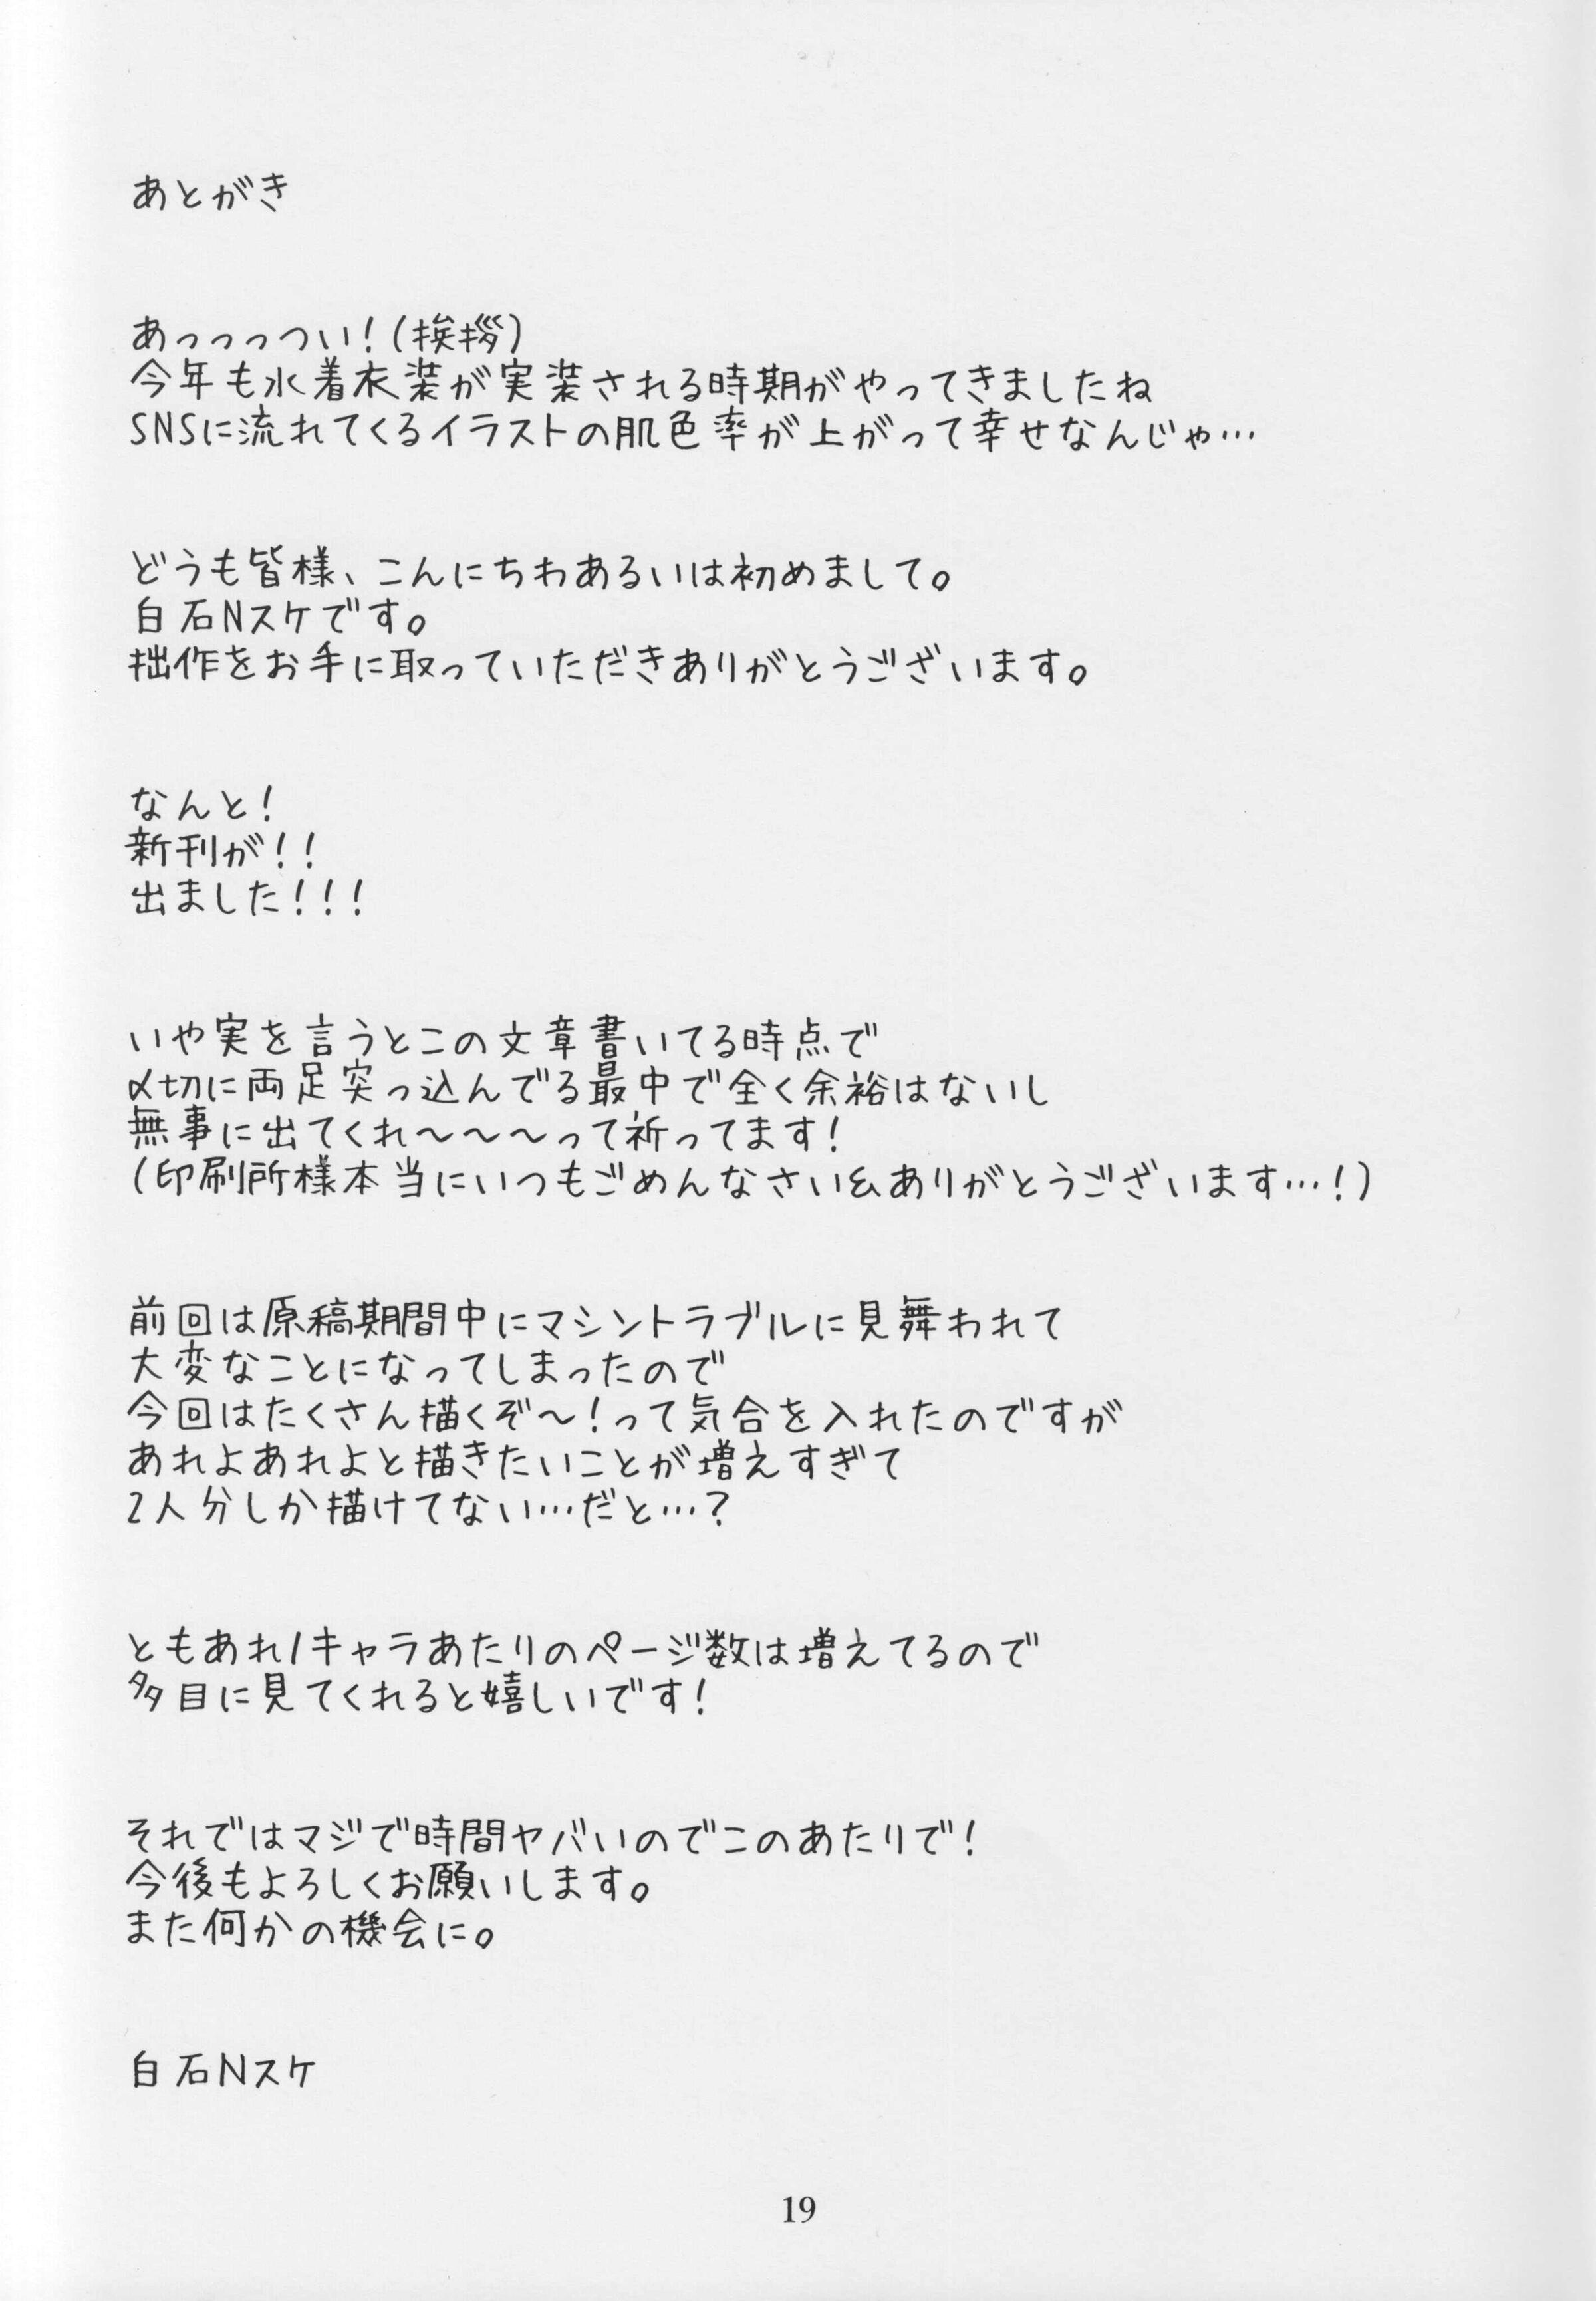 あとがき
あっっっつい！（挨拶）
今年も水着衣装が実装される時期がやってきましたね
SNSに流れてくるイラストの肌色率が上がって幸せなんじゃ…
どうも皆様、こんにちわあるいは初めまして。
白石Nスケです。
拙作をお手に取っていただきありがとうございます。
なんと！
新刊が！！
出ました！！！
いや実を言うとこの文章書いてる時点で
〆切に両足突っ込んでる最中で全く余裕はないし
無事に出てくれ～～～って祈ってます！
（印刷所様本当にいつもごめんなさい&ありがとうございます…！）
前回は原稿期間中にマシントラブルに見舞われて
大変なことになってしまったので
今回はたくさん描くぞ～！って気合を入れたのですが
あれよあれよと描きたいことが増えすぎて
2人分しか描けてない…だと…？
ともあれ1キャラあたりのページ数は増えてるので
多目に見てくれると嬉しいです！
それではマジで時間ヤバいのでこのあたりで！
今後もよろしくお願いします。
また何かの機会に。
白石Nスケ
19